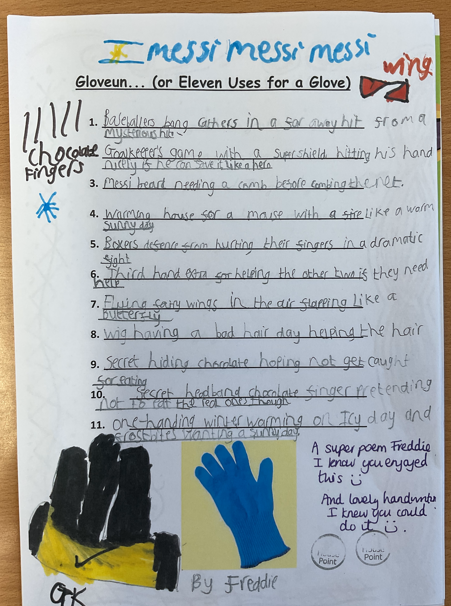 I messi messi messi
wing
Gloveun... (or Eleven Uses for a Glove)
1. bang in a far away hit from a
mysterious hit
chocolate
fingers
Goalkeeper's game with a super shield hitting his hand
nicely if he can save it like a hero
3. Messi beard needing a comb before the net.
4. Warming house for a mouse with a fire like a warm
sunny day
5. Boxers defence from hurting their fingers in a dramatic
fight
6. Third hand extra for helping the other two if they need
help
7. Flying fairy wings in the air flapping like a
butterfly
8. Wig having a bad hair day helping the hair
9. Secret hiding chocolate hoping not get caught
for eating
10. Secret headband chocolate finger pretending
not to eat the real one though
11. one-handing winter warming on Icy day and
wanting a sunny day
A super poem Freddie
I know you enjoyed
this
And lovely handwriting
I knew you could
do it
House
Point
House
Point
By Freddie
GK